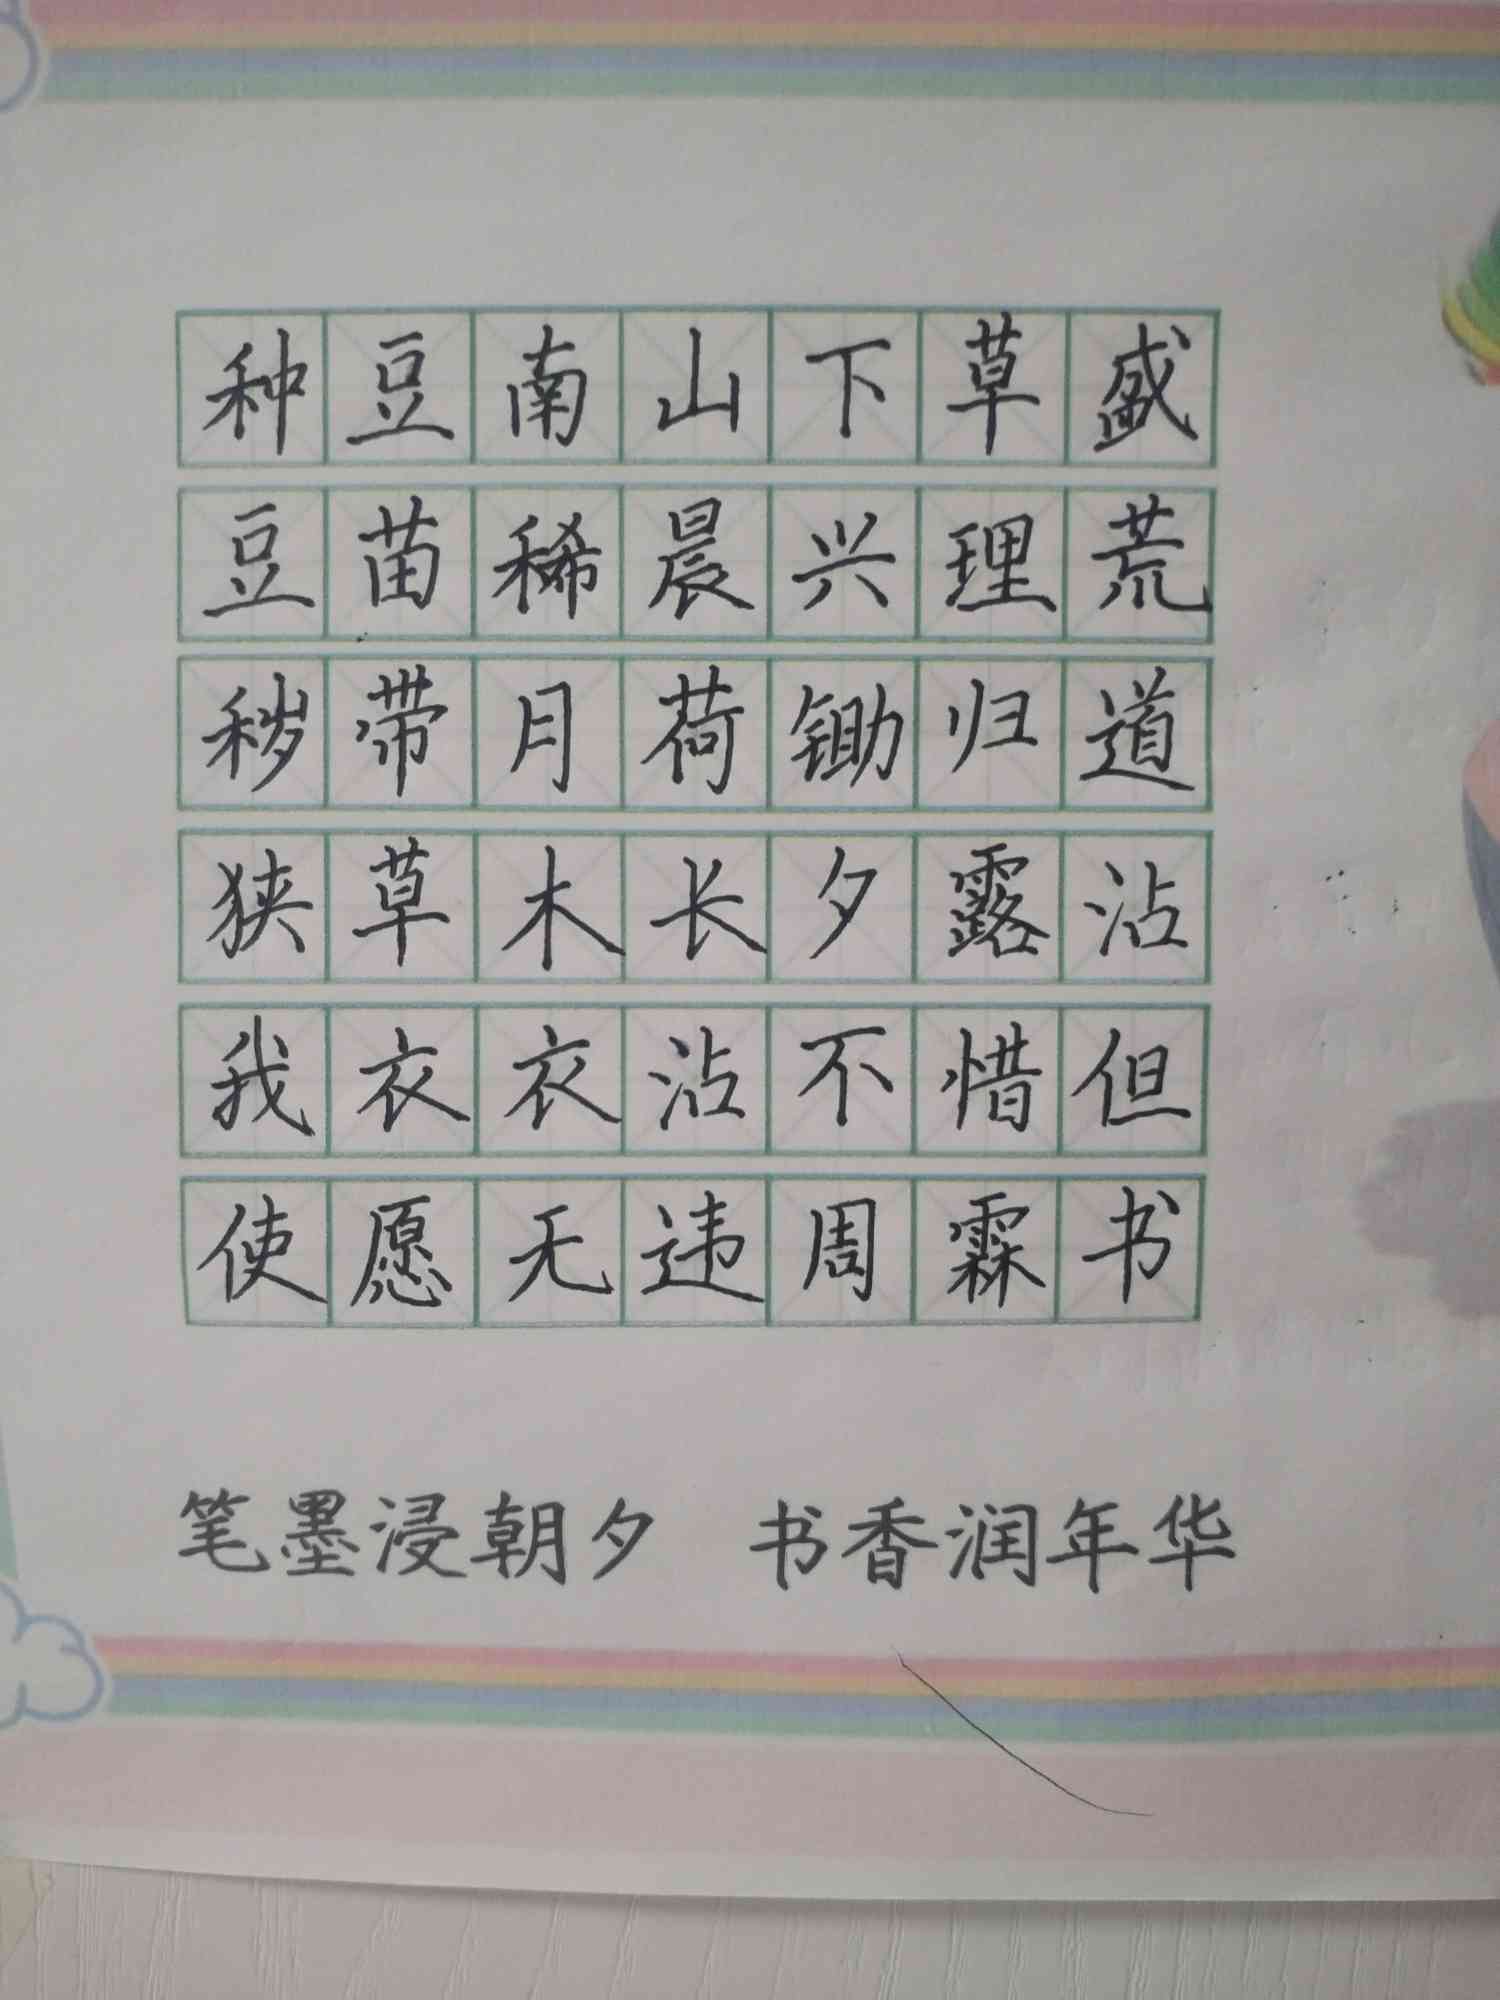 种豆南山下草盛
豆苗稀晨兴理荒
秽带月荷锄归道
狭草木长夕露沾
我衣衣沾不惜但
使愿无违周霖书
笔墨浸朝夕 书香润年华